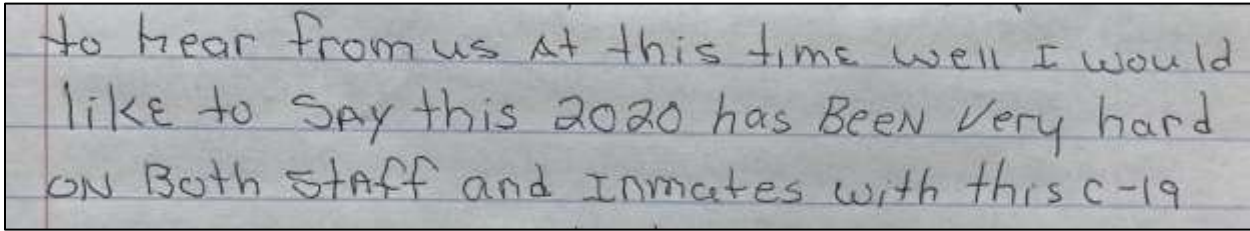 to hear from us At this time well I would
like to SAy this 2020 has BeeN Very hard
ON Both StAff and Inmates with this C-19